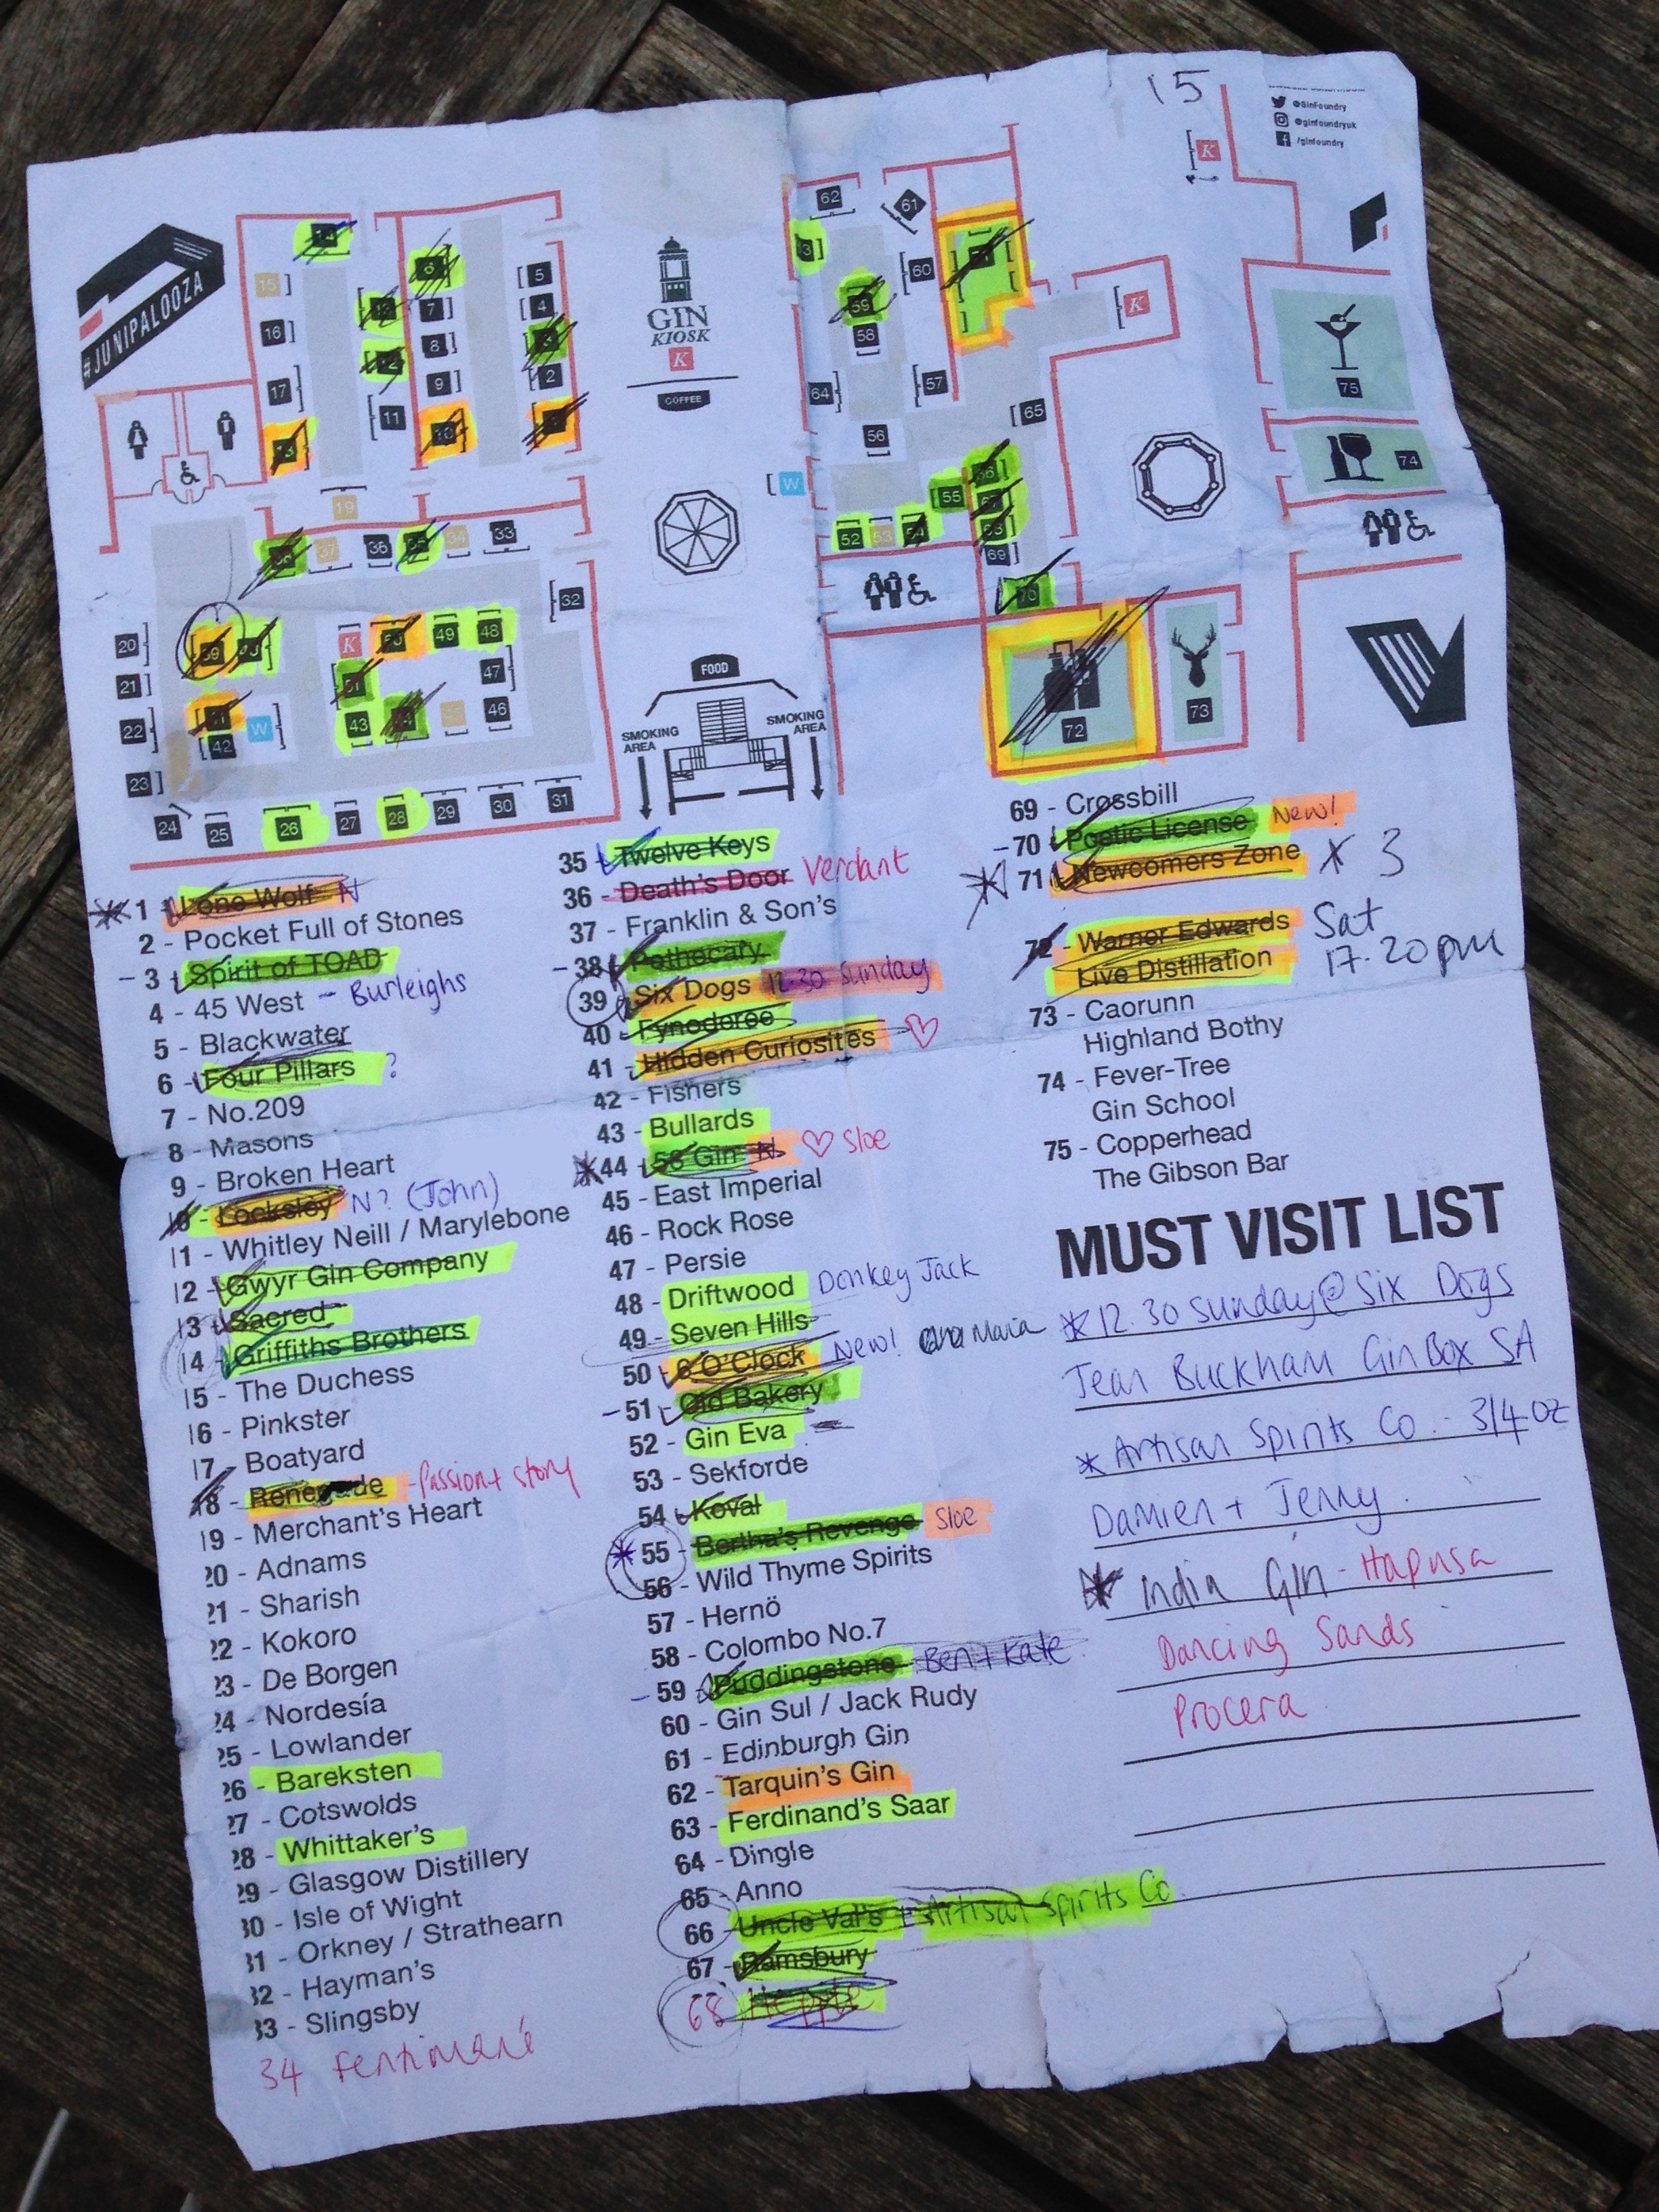 15
@GinFoundry
@ginfoundryuk
/ginfoundry
#JUNIPALOOZA
GIN
KIOSK
K
COFFEE
FOOD
SMOKING
AREA
SMOKING
AREA
1 - Lone Wolf N
2 - Pocket Full of Stones
3 - Spirit of TOAD
4 - 45 West - Burleighs
5 - Blackwater
6 - Four Pillars ?
7 - No.209
8 - Masons
9 - Broken Heart
10 - Locksley N? (John)
11 - Whitley Neill / Marylebone
12 - Gwyr Gin Company
13 - Sacred
14 - Griffiths Brothers
15 - The Duchess
16 - Pinkster
17 - Boatyard
18 - Renegade - Passion + story
19 - Merchant's Heart
20 - Adnams
21 - Sharish
22 - Kokoro
23 - De Borgen
24 - Nordesía
25 - Lowlander
26 - Bareksten
27 - Cotswolds
28 - Whittaker's
29 - Glasgow Distillery
30 - Isle of Wight
31 - Orkney / Strathearn
32 - Hayman's
33 - Slingsby
34 Fentimans
35 - Twelve Keys
36 - Death's Door Verdant
37 - Franklin & Son's
38 - Pothecary
39 - Six Dogs 12-30 Sunday
40 - Fynoderee
41 - Hidden Curiosities
42 - Fishers
43 - Bullards
44 - 58 Gin N Sloe
45 - East Imperial
46 - Rock Rose
47 - Persie
48 - Driftwood Donkey Jack
49 - Seven Hills
50 - 6 O'Clock New! Maria
51 - Old Bakery
52 - Gin Eva
53 - Sekforde
54 - Koval
55 - Bertha's Revenge Sloe
56 - Wild Thyme Spirits
57 - Hernö
58 - Colombo No.7
59 - Puddingstone Ben + Kate
60 - Gin Sul / Jack Rudy
61 - Edinburgh Gin
62 - Tarquin's Gin
63 - Ferdinand's Saar
64 - Dingle
65 - Anno
66 - Uncle Val's + Artisan Spirits Co
67 - Ramsbury
68 Hepple
69 - Crossbill
70 - Poetic License New!
71 - Newcomers Zone * 3
72 - Warner Edwards Sat
Live Distillation 17.20pm
73 - Caorunn
Highland Bothy
74 - Fever-Tree
Gin School
75 - Copperhead
The Gibson Bar
MUST VISIT LIST
* 12.30 Sunday @ Six Dogs
Jean Buckham GinBox SA
* Artisan Spirits Co. - 3/4oz
Damien + Jenny.
* India Gin - Hapusa
Dancing Sands
Procera